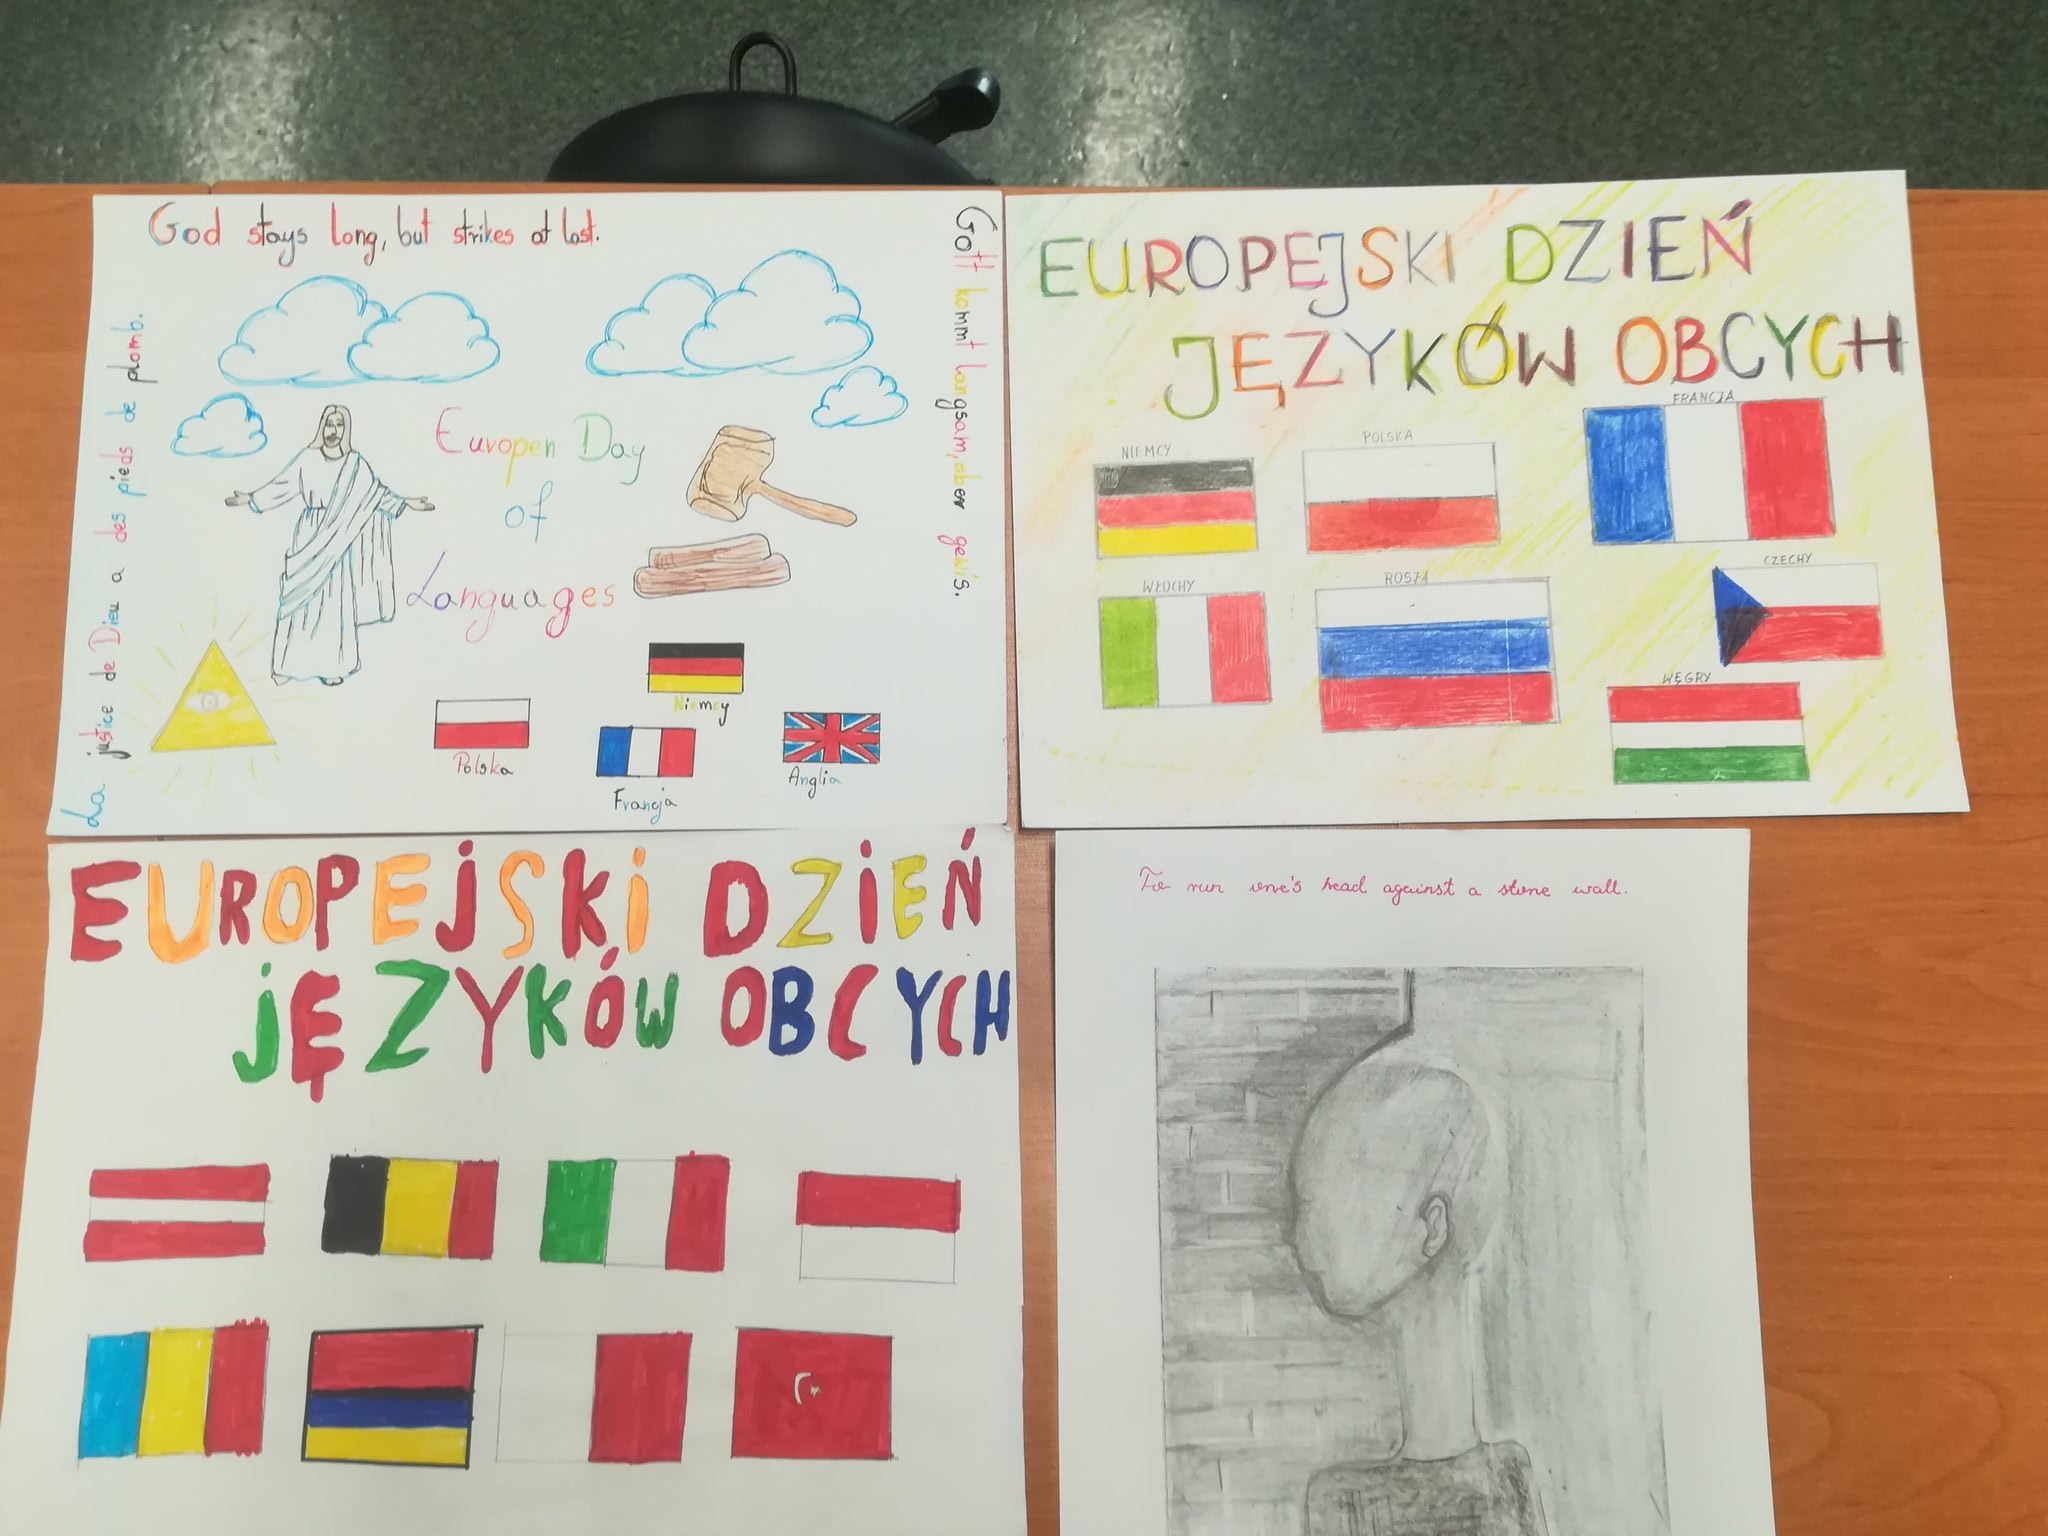 God stays long, but strikes at last.
Gott kommt langsam, aber gewis.
La justice de Dieu a des pieds de plomb.
Europen Day
of
Languages
Niemcy
Polska
Francja
Anglia
EUROPEJSKI DZIEŃ
JĘZYKÓW OBCYCH
FRANCJA
NIEMCY
POLSKA
CZECHY
WŁOCHY
ROSJA
WĘGRY
EUROPEJSKI DZIEŃ
JĘZYKÓW OBCYCH
To run one's head against a stone wall.